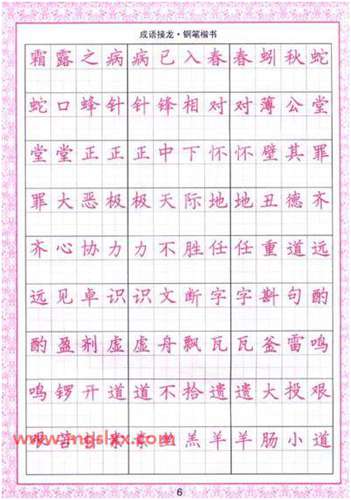 成语接龙·钢笔楷书
霜露之病病已入春春蚓秋蛇
蛇口蜂针针锋相对对薄公堂
堂堂正正正中下怀怀璧其罪
罪大恶极极天际地地丑德齐
齐心协力力不胜任任重道远
远见卓识识文断字字斟句酌
酌盈剂虚虚舟飘瓦瓦釜雷鸣
鸣锣开道道不拾遗遗大投艰
羔羊羊肠小道
www.mgslxx.com
6